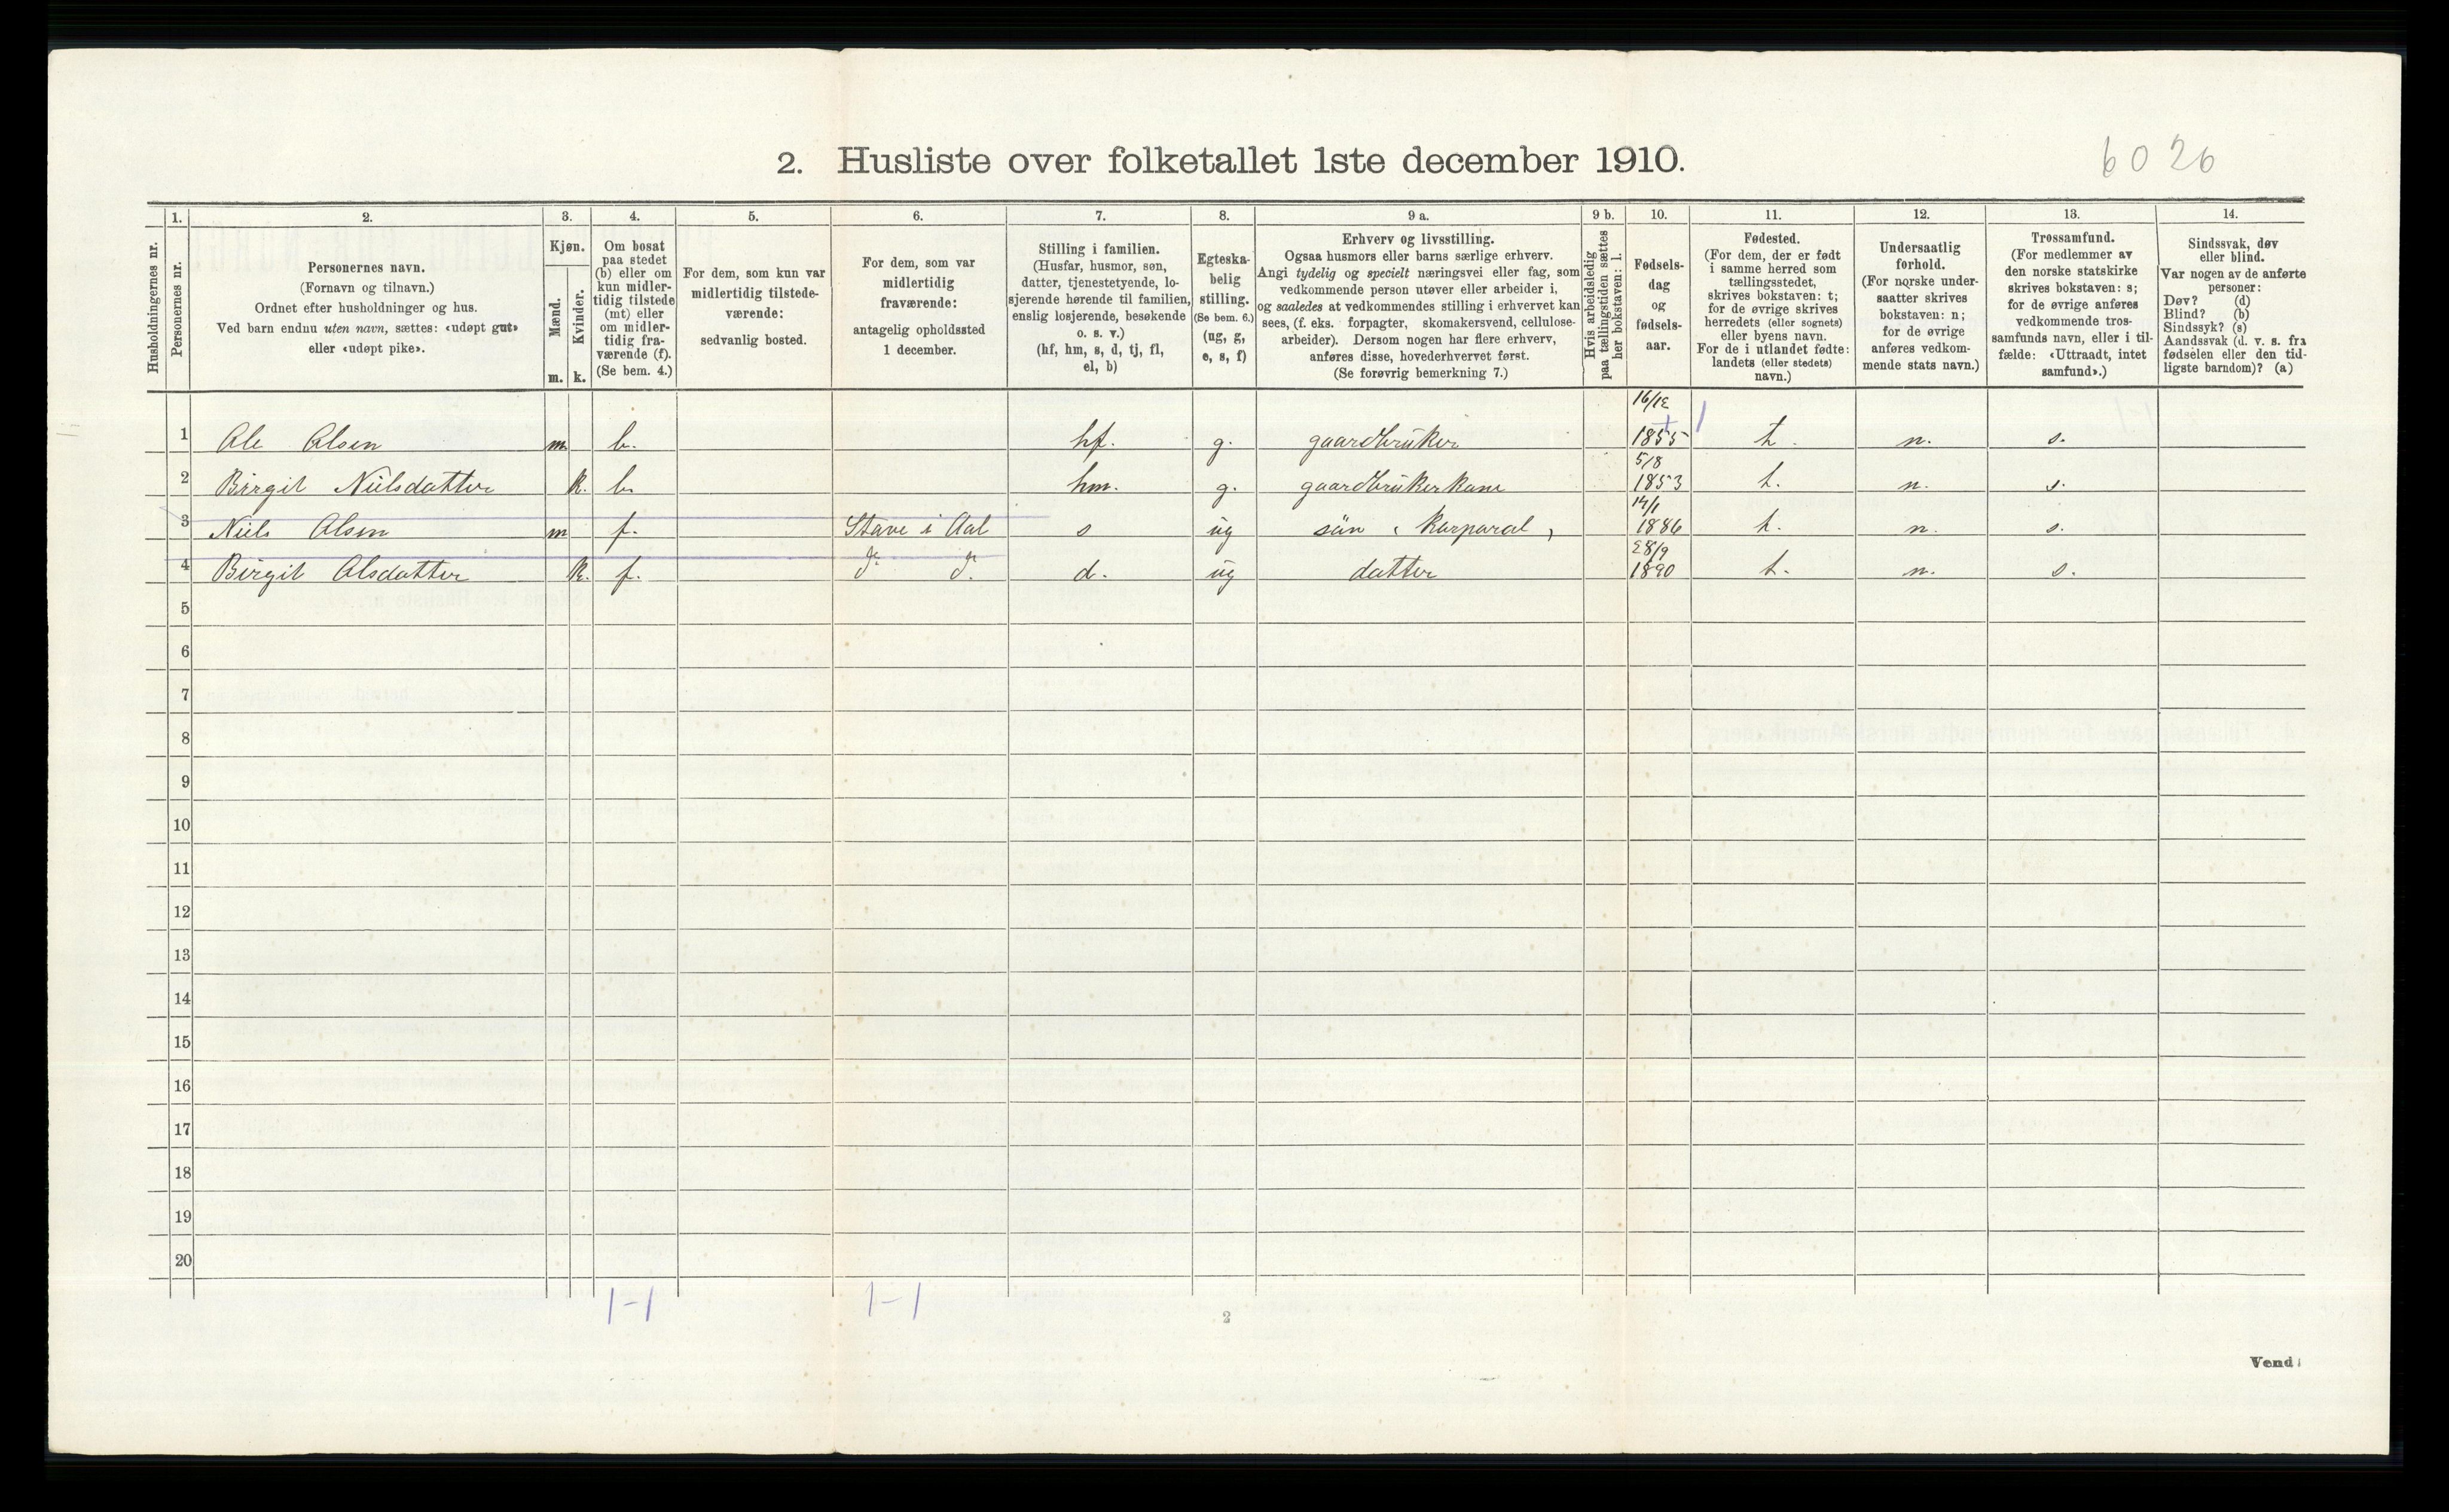 6026
2. Husliste over folketallet 1ste december 1910.
Husholdningernes nr.
1. Personernes nr.
2. Personernes navn.
(Fornavn og tilnavn.)
Ordnet efter husholdninger og hus.
Ved barn endnu uten navn, sættes: «udøpt gut»
eller «udøpt pike».
3. Kjøn.
Mænd. m.
Kvinder. k.
4. Om bosat
paa stedet
(b) eller om
kun midler-
tidig tilstede
(mt) eller
om midler-
tidig fra-
værende (f).
(Se bem. 4.)
5. For dem, som kun var
midlertidig tilstede-
værende:
sedvanlig bosted.
6. For dem, som var
midlertidig
fraværende:
antagelig opholdssted
1 december.
7. Stilling i familien.
(Husfar, husmor, søn,
datter, tjenestetyende, lo-
sjerende hørende til familien,
enslig losjerende, besøkende
o. s. v.)
(hf, hm, s, d, tj, fl,
el, b)
8. Egteska-
belig
stilling.
(Se bem. 6.)
(ug, g,
e, s, f)
9 a. Erhverv og livsstilling.
Ogsaa husmors eller barns særlige erhverv.
Angi tydelig og specielt næringsvei eller fag, som
vedkommende person utøver eller arbeider i,
og saaledes at vedkommendes stilling i erhvervet kan
sees, (f. eks. forpagter, skomakersvend, cellulose-
arbeider). Dersom nogen har flere erhverv,
anføres disse, hovederhvervet først.
(Se forøvrig bemerkning 7.)
9 b. Hvis arbeidsledig
paa tællingstiden sættes
her bokstaven: l.
10. Fødsels-
dag
og
fødsels-
aar.
11. Fødested.
(For dem, der er født
i samme herred som
tællingsstedet,
skrives bokstaven: t;
for de øvrige skrives
herredets (eller sognets)
eller byens navn.
For de i utlandet fødte:
landets (eller stedets)
navn.)
12. Undersaatlig
forhold.
(For norske under-
saatter skrives
bokstaven: n;
for de øvrige
anføres vedkom-
mende stats navn.)
13. Trossamfund.
(For medlemmer av
den norske statskirke
skrives bokstaven: s;
for de øvrige anføres
vedkommende tros-
samfunds navn, eller i til-
fælde: «Uttraadt, intet
samfund».)
14. Sindssvak, døv
eller blind.
Var nogen av de anførte
personer:
Døv? (d)
Blind? (b)
Sindssyk? (s)
Aandssvak (d. v. s. fra
fødselen eller den tid-
ligste barndom)? (a)
1 Ole Olsen m b. hf. g. gaardbruker 16/12 1855 t. n. s.
2 Birgit Nielsdatter k. b. hm. g. gaardbrukerkone 5/8 1853 t. n. s.
3 Niels Olsen m f. Stave i Aal s ug sön (korporal) 14/1 1886 t. n. s.
4 Birgit Olsdatter k. f. do do d. ug datter 28/9 1890 t. n. s.
5
6
7
8
9
10
11
12
13
14
15
16
17
18
19
20
1-1 1-1
2
Vend!